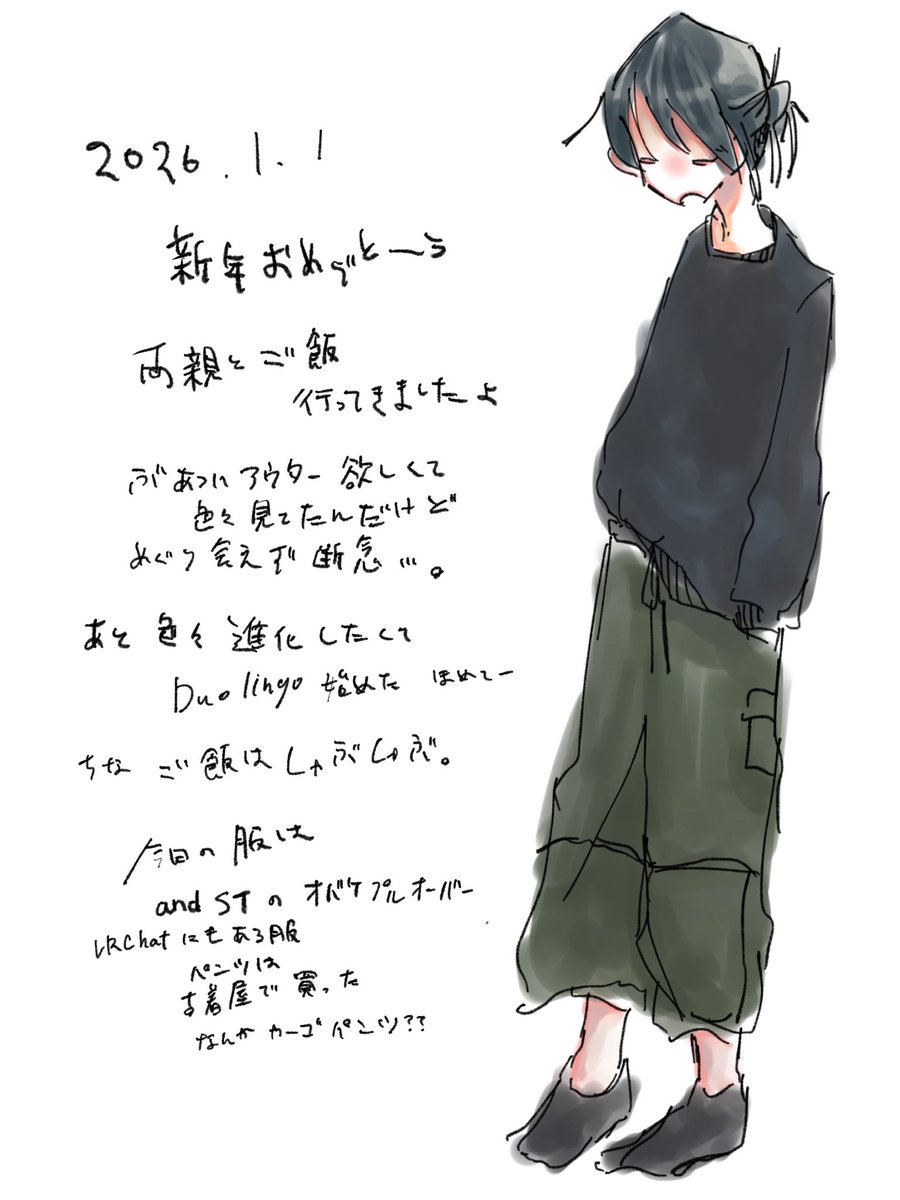 2026.1.1
新年おめでとーう
両親とご飯
行ってきましたよ
ぶあついアウター欲しくて
色々見てたんだけど
めぐり会えず断念…。
あと色々進化したくて
Duolingo 始めた ほめてー
ちな ご飯はしゃぶしゃぶ。
今日の服は
and STのオバケプルオーバー
VRChatにもある服
パンツは
古着屋で買った
なんかカーゴパンツ??